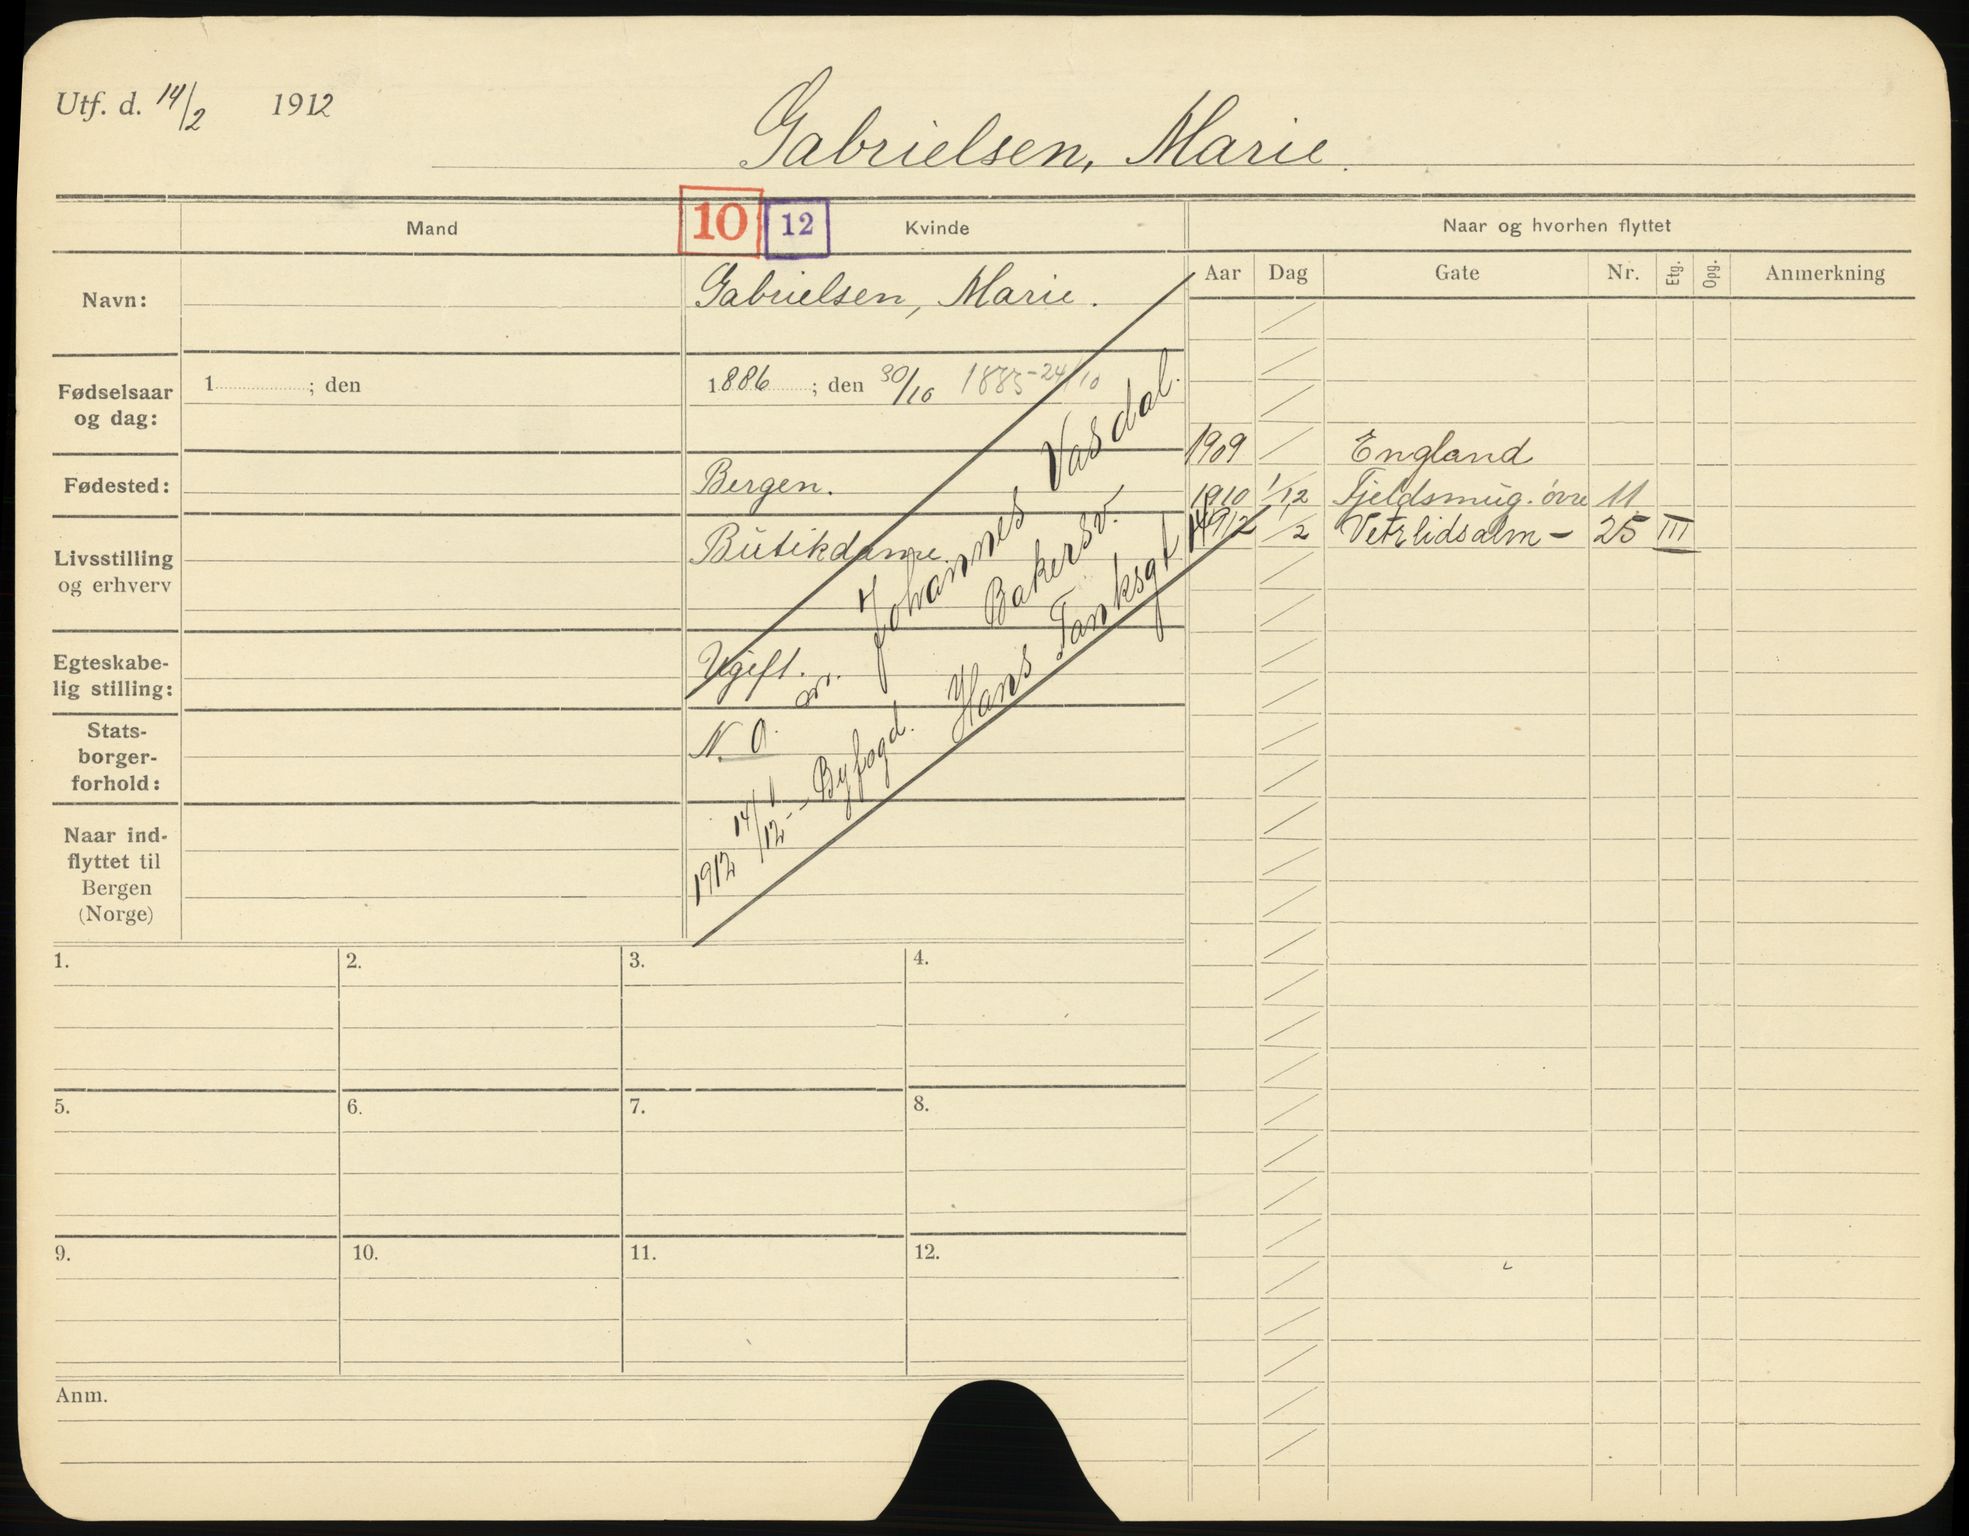 Utf. d. 14/2 1912
Gabrielsen, Marie.
Mand
10 12
Kvinde
Naar og hvorhen flyttet
Aar Dag Gate Nr. Etg. Opg. Anmerkning
Navn:
Gabrielsen, Marie.
Fødselsaar og dag:
1 ; den
1886 ; den 30/10 1885-24/10
Fødested:
Bergen.
Livsstilling og erhverv
Butikdame
Egteskabe-
lig stilling:
Ugift.
Stats-
borger-
forhold:
N. O.
Naar ind-
flyttet til
Bergen
(Norge)
1912 14/12 - Byfogd.
Johannes Vasdal.
Bakersv.
Hans Tanksgt 14
1909 England
1910 1/12 Fjeldsmug. øvre 11
1912 /2 Vetrlidsalm - 25 III
1. 2. 3. 4.
5. 6. 7. 8.
9. 10. 11. 12.
Anm.